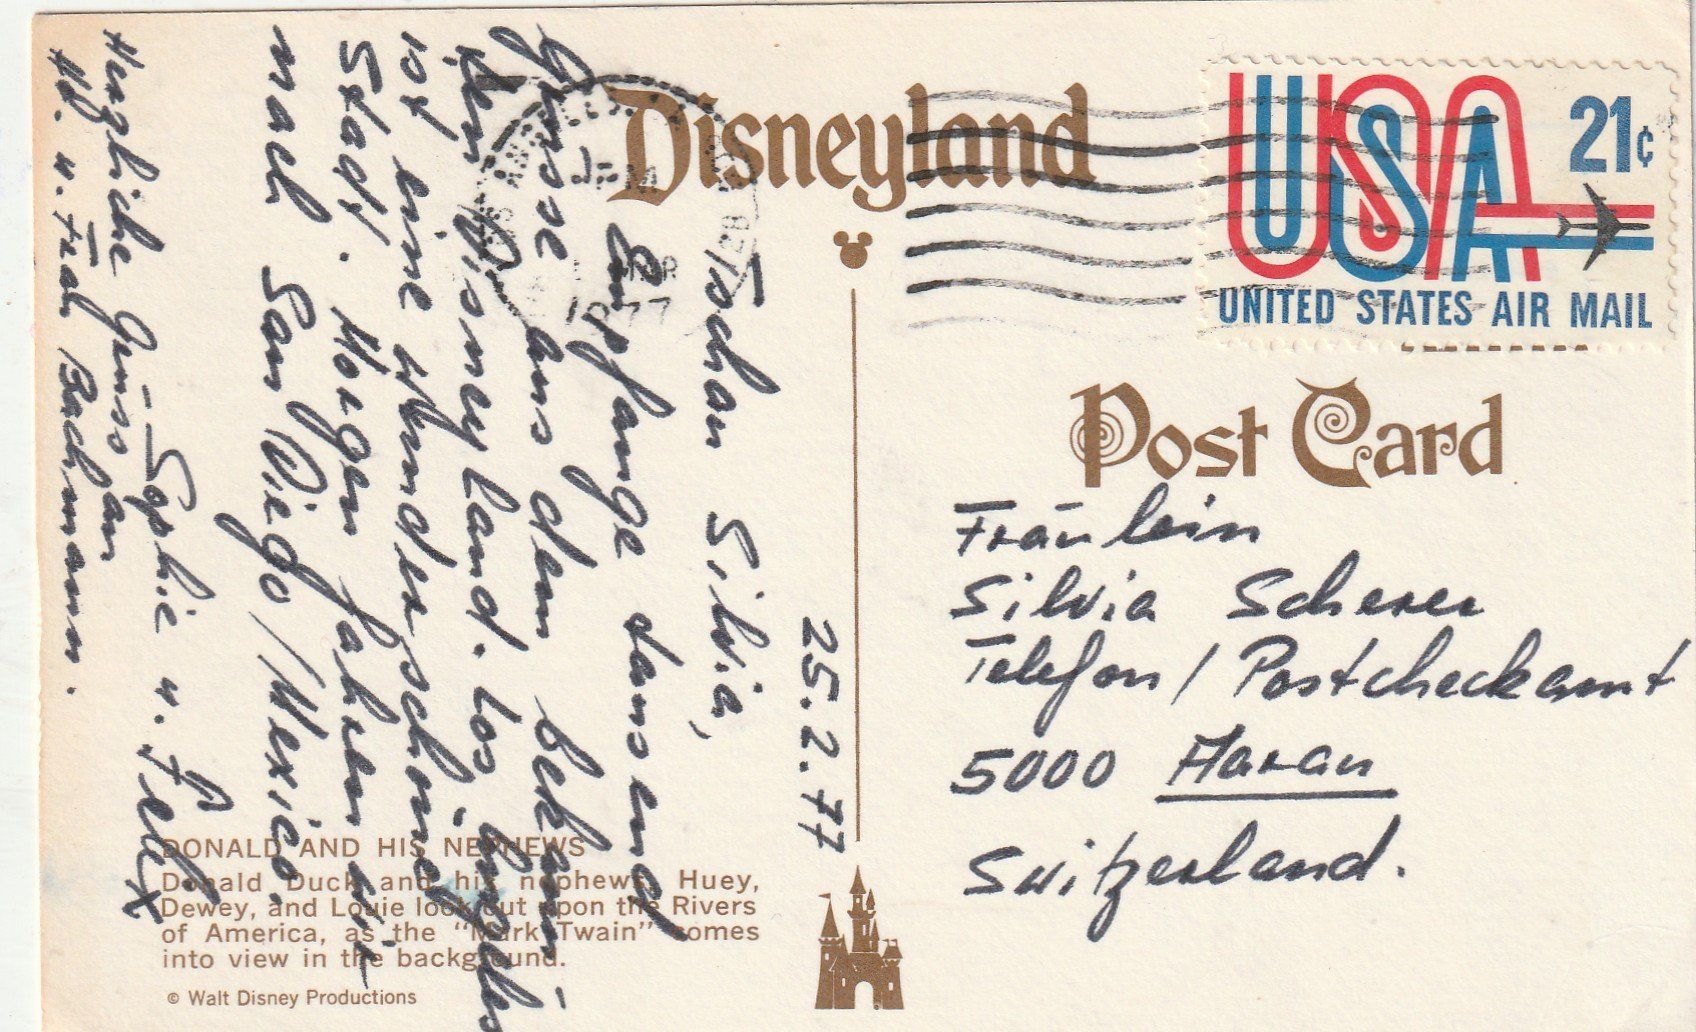 Disneyland
USA
21c
UNITED STATES AIR MAIL
PM
1977
Post Card
25.2.77
Tschau Silvia,
Empfange tausend
Grüsse aus dem bekann-
ten Disneyland. Los Angeles
ist eine wunderschöne
Stadt. Morgen fahren wir
nach San Diego/Mexico.
Sophie u. Felix
Herzliche Grüsse an
u. Frau Bachmann.
Fräulein
Silvia Scherer
Telefon/Postcheckamt
5000 Aarau
Switzerland.
DONALD AND HIS NEPHEWS
Donald Duck and his nephews, Huey,
Dewey, and Louie look out upon the Rivers
of America, as the "Mark Twain" comes
into view in the background.
© Walt Disney Productions